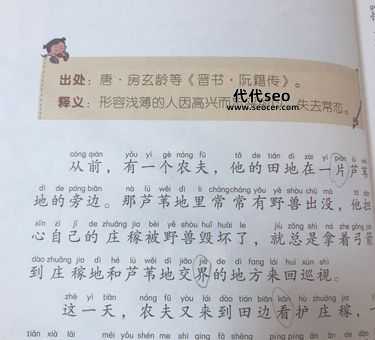 出处：唐·房玄龄等《晋书·阮籍传》。
释义：形容浅薄的人因高兴而 失去常态。
代代seo
www.seocer.com
cóng qián yǒu yí gè nóng fū tā de tián dì zài yí piàn lú wěi
从前，有一个农夫，他的田地在一片芦苇
dì de páng biān nà lú wěi dì li cháng cháng yǒu yě shòu chū mò tā dān
地的旁边。那芦苇地里常常有野兽出没，他担
xīn zì jǐ de zhuāng jia bèi yě shòu huǐ huài le jiù zǒng shì ná zhe gōng jiàn
心自己的庄稼被野兽毁坏了，就总是拿着弓箭
dào zhuāng jia dì hé lú wěi dì jiāo jiè de dì fang lái huí xún shì
到庄稼地和芦苇地交界的地方来回巡视。
zhè yì tiān nóng fū yòu lái dào tián biān kān hù zhuāng jia
这一天，农夫又来到田边看护庄稼，一
tiān xià lái méi yǒu shén me shì qing fā shēng